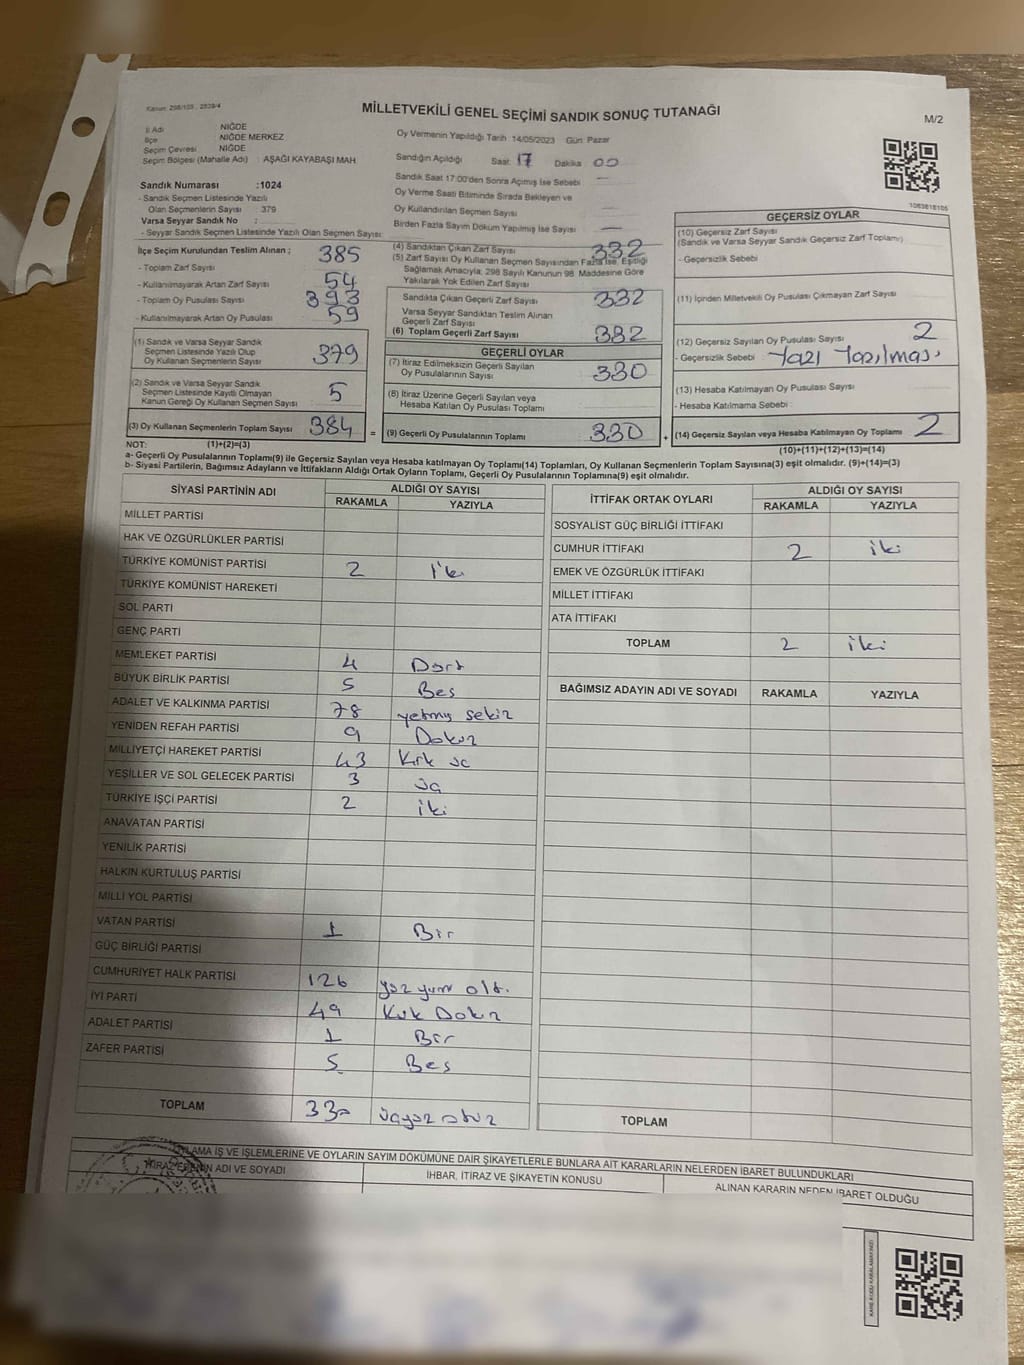 Kanun: 298/105, 2839/4
MİLLETVEKİLİ GENEL SEÇİMİ SANDIK SONUÇ TUTANAĞI
M/2
İl Adı NİĞDE
İlçe NİĞDE MERKEZ
Seçim Çevresi NİĞDE
Seçim Bölgesi (Mahalle Adı) : AŞAĞI KAYABAŞI MAH
Oy Vermenin Yapıldığı Tarih 14/05/2023 Gün Pazar
Sandığın Açıldığı Saat 17 Dakika 00
Sandık Saat 17.00'den Sonra Açılmış İse Sebebi —
Oy Verme Saati Bitiminde Sırada Bekleyen ve
Oy Kullandırılan Seçmen Sayısı
Birden Fazla Sayım Döküm Yapılmış İse Sayısı —
1083818105
Sandık Numarası :1024
- Sandık Seçmen Listesinde Yazılı
Olan Seçmenlerin Sayısı : 379
Varsa Seyyar Sandık No :
- Seyyar Sandık Seçmen Listesinde Yazılı Olan Seçmen Sayısı:
İlçe Seçim Kurulundan Teslim Alınan ;
- Toplam Zarf Sayısı 385
- Kullanılmayarak Artan Zarf Sayısı 54
- Toplam Oy Pusulası Sayısı 393
- Kullanılmayarak Artan Oy Pusulası 59
(1) Sandık ve Varsa Seyyar Sandık
Seçmen Listesinde Yazılı Olup
Oy Kullanan Seçmenlerin Sayısı 379
(2) Sandık ve Varsa Seyyar Sandık
Seçmen Listesinde Kayıtlı Olmayan
Kanun Gereği Oy Kullanan Seçmen Sayısı 5
(3) Oy Kullanan Seçmenlerin Toplam Sayısı 384 =
(4) Sandıktan Çıkan Zarf Sayısı 332
(5) Zarf Sayısı Oy Kullanan Seçmen Sayısından Fazla İse, Eşitliği
Sağlamak Amacıyla, 298 Sayılı Kanunun 98. Maddesine Göre
Yakılarak Yok Edilen Zarf Sayısı
Sandıkta Çıkan Geçerli Zarf Sayısı 332
Varsa Seyyar Sandıktan Teslim Alınan
Geçerli Zarf Sayısı
(6) Toplam Geçerli Zarf Sayısı 332
GEÇERLİ OYLAR
(7) İtiraz Edilmeksizin Geçerli Sayılan
Oy Pusulalarının Sayısı 330
(8) İtiraz Üzerine Geçerli Sayılan veya
Hesaba Katılan Oy Pusulası Toplamı
(9) Geçerli Oy Pusulalarının Toplamı 330 +
GEÇERSİZ OYLAR
(10) Geçersiz Zarf Sayısı
(Sandık ve Varsa Seyyar Sandık Geçersiz Zarf Toplamı)
- Geçersizlik Sebebi
(11) İçinden Milletvekili Oy Pusulası Çıkmayan Zarf Sayısı
(12) Geçersiz Sayılan Oy Pusulası Sayısı 2
- Geçersizlik Sebebi Yazı Yazılması
(13) Hesaba Katılmayan Oy Pusulası Sayısı
- Hesaba Katılmama Sebebi :
(14) Geçersiz Sayılan veya Hesaba Katılmayan Oy Toplamı 2
NOT: (1)+(2)=(3) (10)+(11)+(12)+(13)=(14)
a- Geçerli Oy Pusulalarının Toplamı(9) ile Geçersiz Sayılan veya Hesaba katılmayan Oy Toplamı(14) Toplamları, Oy Kullanan Seçmenlerin Toplam Sayısına(3) eşit olmalıdır. (9)+(14)=(3)
b- Siyasi Partilerin, Bağımsız Adayların ve İttifakların Aldığı Ortak Oyların Toplamı, Geçerli Oy Pusulalarının Toplamına(9) eşit olmalıdır.
SİYASİ PARTİNİN ADI ALDIĞI OY SAYISI
RAKAMLA YAZIYLA
MİLLET PARTİSİ
HAK VE ÖZGÜRLÜKLER PARTİSİ
TÜRKİYE KOMÜNİST PARTİSİ 2 İki
TÜRKİYE KOMÜNİST HAREKETİ
SOL PARTİ
GENÇ PARTİ
MEMLEKET PARTİSİ 4 Dört
BÜYÜK BİRLİK PARTİSİ 5 Beş
ADALET VE KALKINMA PARTİSİ 78 yetmiş sekiz
YENİDEN REFAH PARTİSİ 9 Dokuz
MİLLİYETÇİ HAREKET PARTİSİ 43 Kırk üç
YEŞİLLER VE SOL GELECEK PARTİSİ 3 üç
TÜRKİYE İŞÇİ PARTİSİ 2 iki
ANAVATAN PARTİSİ
YENİLİK PARTİSİ
HALKIN KURTULUŞ PARTİSİ
MİLLİ YOL PARTİSİ
VATAN PARTİSİ 1 Bir
GÜÇ BİRLİĞİ PARTİSİ
CUMHURİYET HALK PARTİSİ 126 yüz yirmi altı
İYİ PARTİ 49 Kırk Dokuz
ADALET PARTİSİ 1 Bir
ZAFER PARTİSİ 5 Beş
TOPLAM 330 üçyüz otuz
İTTİFAK ORTAK OYLARI ALDIĞI OY SAYISI
RAKAMLA YAZIYLA
SOSYALİST GÜÇ BİRLİĞİ İTTİFAKI
CUMHUR İTTİFAKI 2 iki
EMEK VE ÖZGÜRLÜK İTTİFAKI
MİLLET İTTİFAKI
ATA İTTİFAKI
TOPLAM 2 iki
BAĞIMSIZ ADAYIN ADI VE SOYADI RAKAMLA YAZIYLA
TOPLAM
OYLAMA İŞ VE İŞLEMLERİNE VE OYLARIN SAYIM DÖKÜMÜNE DAİR ŞİKAYETLERLE BUNLARA AİT KARARLARIN NELERDEN İBARET BULUNDUKLARI
İTİRAZ EDENİN ADI VE SOYADI İHBAR, İTİRAZ VE ŞİKAYETİN KONUSU ALINAN KARARIN NEDEN İBARET OLDUĞU
KARE KODU KARALAMAYINIZ!